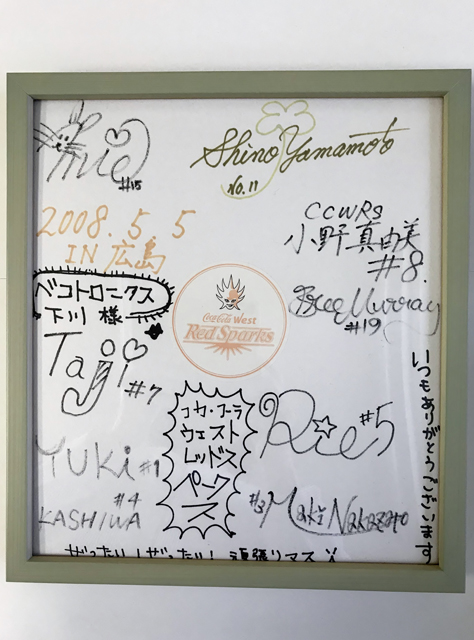 mie
#15
Shino Yamamoto
No.11
2008.5.5
IN 広島
CCWRS
小野真由美
#8.
ベコトロニクス
下川 様
Coca-Cola West
Red Sparks
Bree Murray
#19
Taji
#7
コカ・コーラ
ウエスト
レッドス
パーク
ス
Rie
#5
いつもありがとうございます
YUKi #1
#4
KASHIWA
#3 Maki Nakazato
ぜったい!ぜったい!頑張リマス